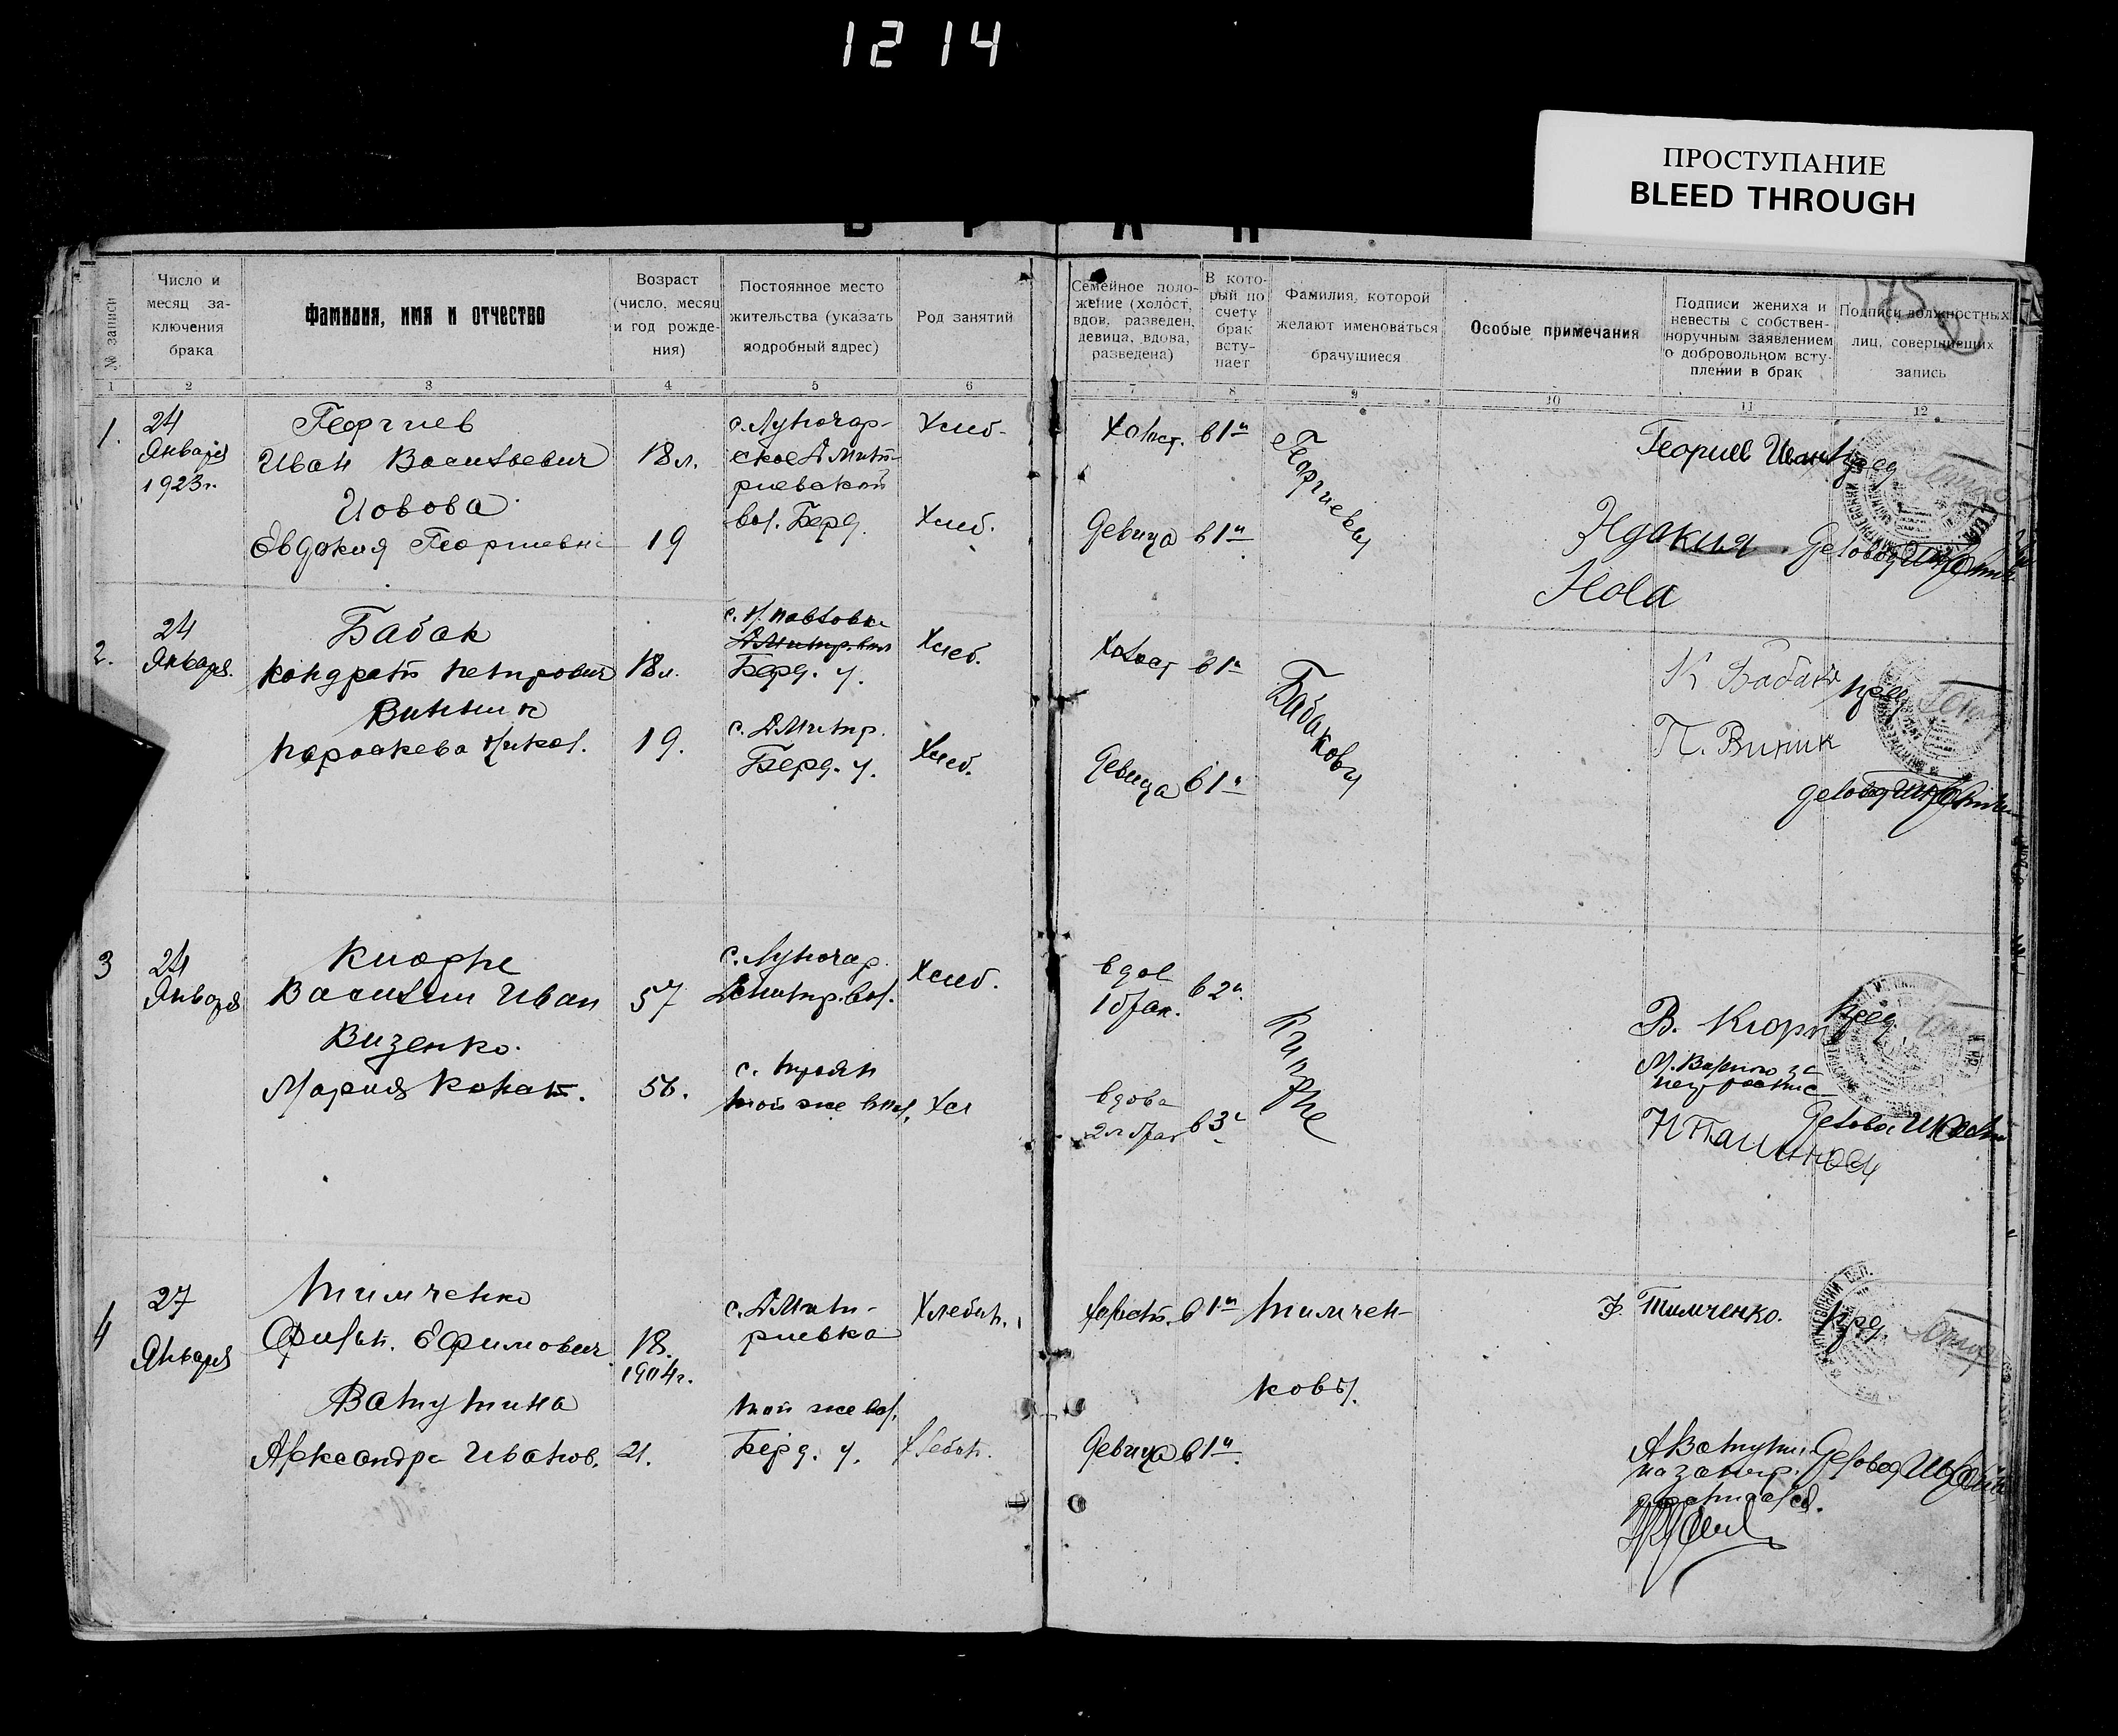 1214
ПРОСТУПАНИЕ
BLEED THROUGH
БРАК
175
№ записи
Число и месяц за-
ключения
брака
Фамилия, имя и отчество
Возраст
(число, месяц
и год рожде-
ния)
Постоянное место
жительства (указать
подробный адрес)
Род занятий
Семейное поло-
жение (холост,
вдов, разведен,
девица, вдова,
разведена)
В кото-
рый по
счету
брак
всту-
пает
Фамилия, которой
желают именоваться
брачущиеся
Особые примечания
Подписи жениха и
невесты с собствен-
норучным заявлением
о добровольном всту-
плении в брак
Подписи должностных
лиц, совершивших
запись
1 2 3 4 5 6 7 8 9 10 11 12
1.
24
Января
1923 г.
Георгиев
Иван Васильевич
Иовова
Евдокия Георгиевн
18 л.
19
с. Луначар-
ское Дмит-
риевской
вол. Берд.
Хлеб.
Хлеб.
Холост.
в 1й
девица
в 1й
Георгиевы
Георгиев Иван
Пред
деловод
2.
24
Января.
Бабак
Кондрат Петрович
Винник
Параскева Никол.
18 л.
19.
с. Н. Павловка
Дмитр. вол
Берд. у.
с. Дмитр.
Берд. у.
Хлеб.
Хлеб.
Холост
в 1й
девица
в 1й
Бабаковы
К Бабак
П. Виник
пред
деловод
3
24
Января
Киорпе
Василий Иван
Визенко
Мария Конст.
57
56.
с. Луначар.
Дмитр. вол.
с. Троян
той же вол.
Хлеб.
Хл
вдов
1 брак.
в 2й
вдова
2м брак
в 3й
Киорпе
В. Киорп
Пред
4
27
Января
Тимченко
Филип. Ефимович
Ватутина
Александра Иванов.
18.
1904 г.
21.
с. Дмит-
риевка
той же вол.
Берд. у.
Хлебоп.
Хлебоп.
Холост.
в 1й
девица
в 1й
Тимчен-
ковы.
Ф. Тимченко.
Пред
А Ватутин
деловод